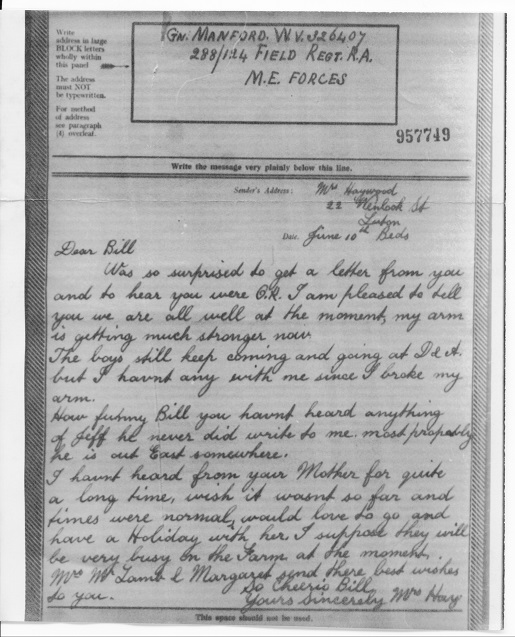 Write
address in large
BLOCK letters
wholly within
this panel
The address
must NOT
be typewritten.
For method
of address
see paragraph
(4) overleaf.
GN. MANFORD. W.V. 326407
288/124 FIELD REGT. R.A.
M.E. FORCES
957749
Write the message very plainly below this line.
Sender's Address: Mrs Haywood
22 Wenlock St
Luton
Beds
Date. June 10th
Dear Bill
Was so surprised to get a letter from you
and to hear you were O.K. I am pleased to tell
you we are all well at the moment, my arm
is getting much stronger now.
The boys still keep coming and going at D & A.
but I havnt any with me since I broke my
arm.
How funny Bill you havnt heard anything
of Jeff he never did write to me. most propably
he is out East somewhere.
I havnt heard from your Mother for quite
a long time, wish it wasnt so far and
times were normal, would love to go and
have a Holiday with her. I suppose they will
be very busy on the Farm at the moment.
Mrs Mr Lamb & Margaret send there best wishes
to you.
So Cheerio Bill
Yours Sincerely Mrs Hay
This space should not be used.